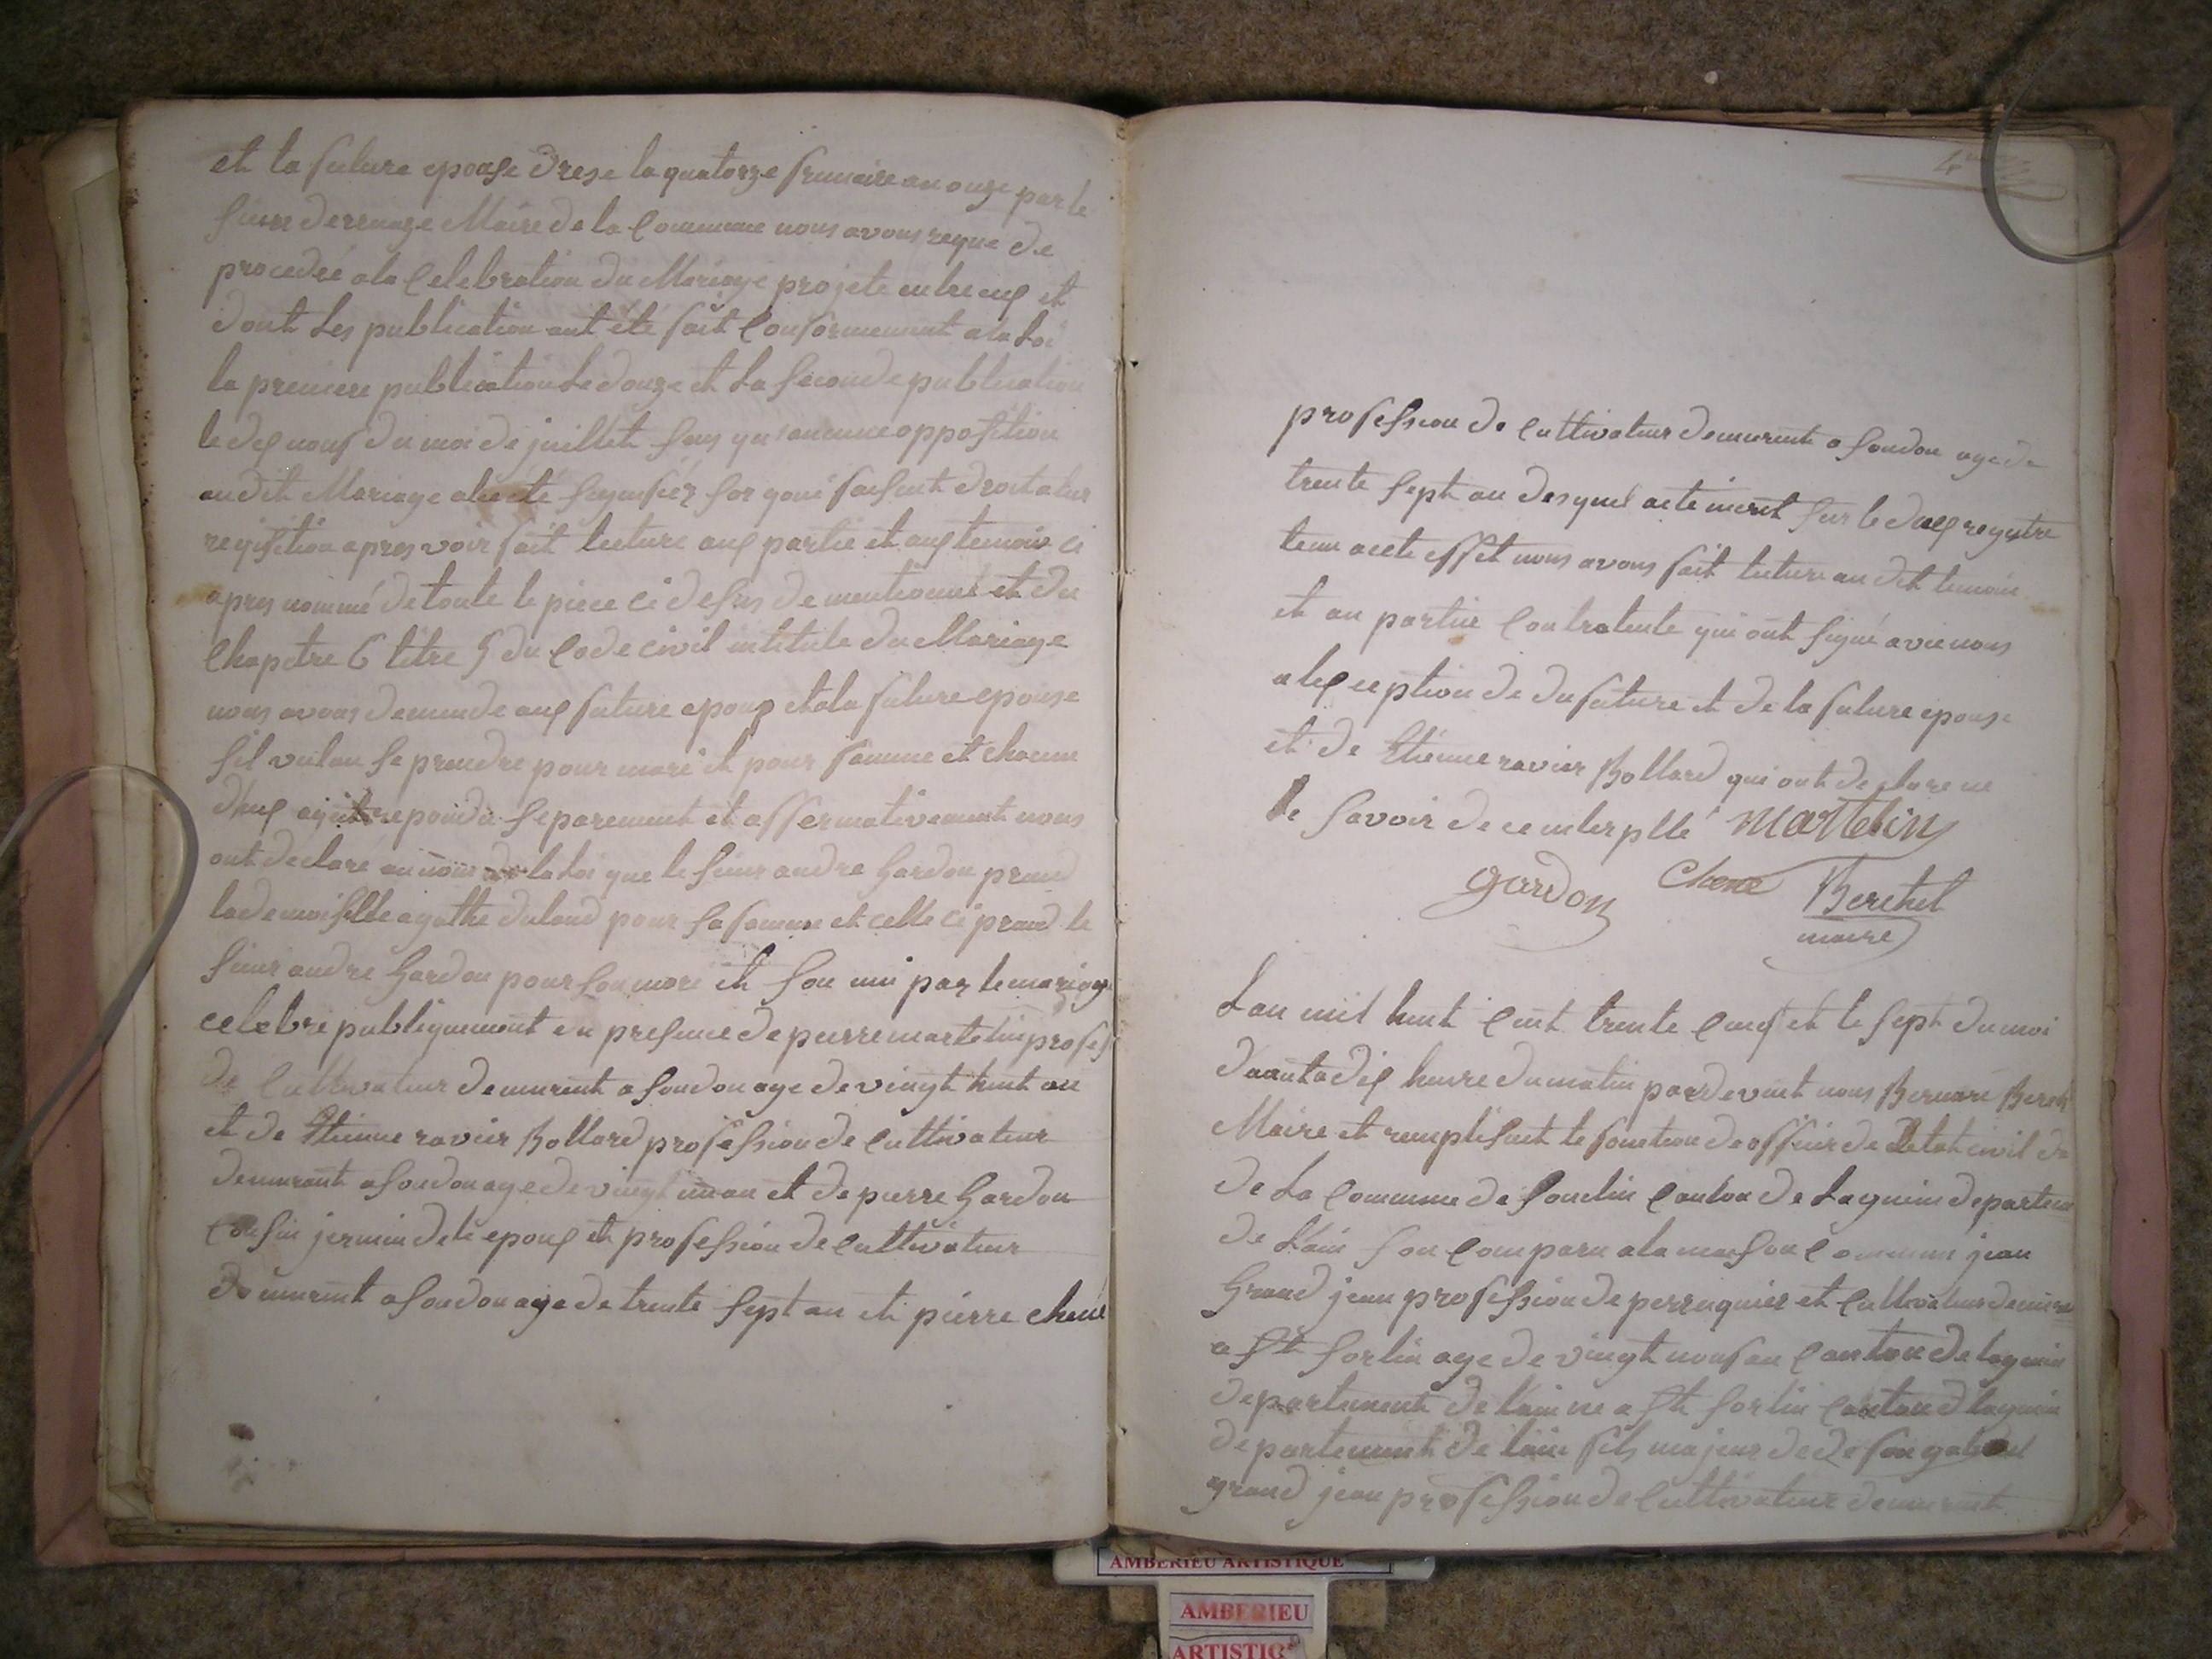 et la future epouse drese la quatorze frimaire an onze par le
sieur dernaze Maire de la Commune nous avous reque de
procedeé ala Celebration du Mariage projete entre eux et
dont les publication ont été fait Conformement a la Loi
la premiere publication le douze et la seconde publication
le dix nouf du moi de juillet sans qu'aucune opposition
audit Mariage aie été signifiéz faisant droit a leur
reqisition apres voir fait lecture aux partie et aux temoin ci
apres nommé de toute le piece ci desus de mentionné et du
Chapitre 6 titre 5 du Code civil intitule du Mariage
nous avons demende aux future epoux et a la future epouse
sil vulon se prendre pour mari et pour famme et chacun
d'eux ajent repondu separement et affermativement nous
ont declare au nom de la loi que le sieur andre Gardon prand
la demoiselle agathe duland pour sa famme et celle ci prand le
sieur andre Gardon pour son mari et son uni par le mariage
celebre publiquement en presence de pierre martelin profes
de Cultivateur demurent a soudon age de vingt huit an
et de Etienne ravier Bollard profession de Cultivateur
demurant a soudon age de vingt un an et de pierre Gardon
Cousin jermin de le epoux et profession de Cultivateur
demurent a soudon age de trente sept an et pierre chene
4
profession de Cultivateur demurent a soudon age de
trente sept an desquel acte incrit sur le deux regitre
tenu a cete effet nous avons fait lecture au dit temoin
et au partie Contratente qui ont signé avec nous
a lexception de du future et de la future epouse
et de Etienne ravier Bollard qui ont declare ne
le savoir de ce interpllé Martelin
gardon Chene Berchet
maire
Lan mil huit Cent trente Cinq et le sept du moi
daout a dix heure du matin par devent nous Bernard Berch
Maire et remplisant le fonction de officier de Letat civil de
de La Commune de Souclin Canton de Lagnieu departem
de Lain son Comparu a la maison Commune jean
Grand jean profession de perruquier et Cultivateur demure
a St Sorlin age de vingt nouf an Canton de lagnieu
departement de Lain ne a St Sorlin Canton d lagnieu
departement de Lain fils majeur de de fon
grand jean profession de Cultivateur demurent
AMBERIEU ARTISTIQUE
AMBERIEU
ARTISTIQ